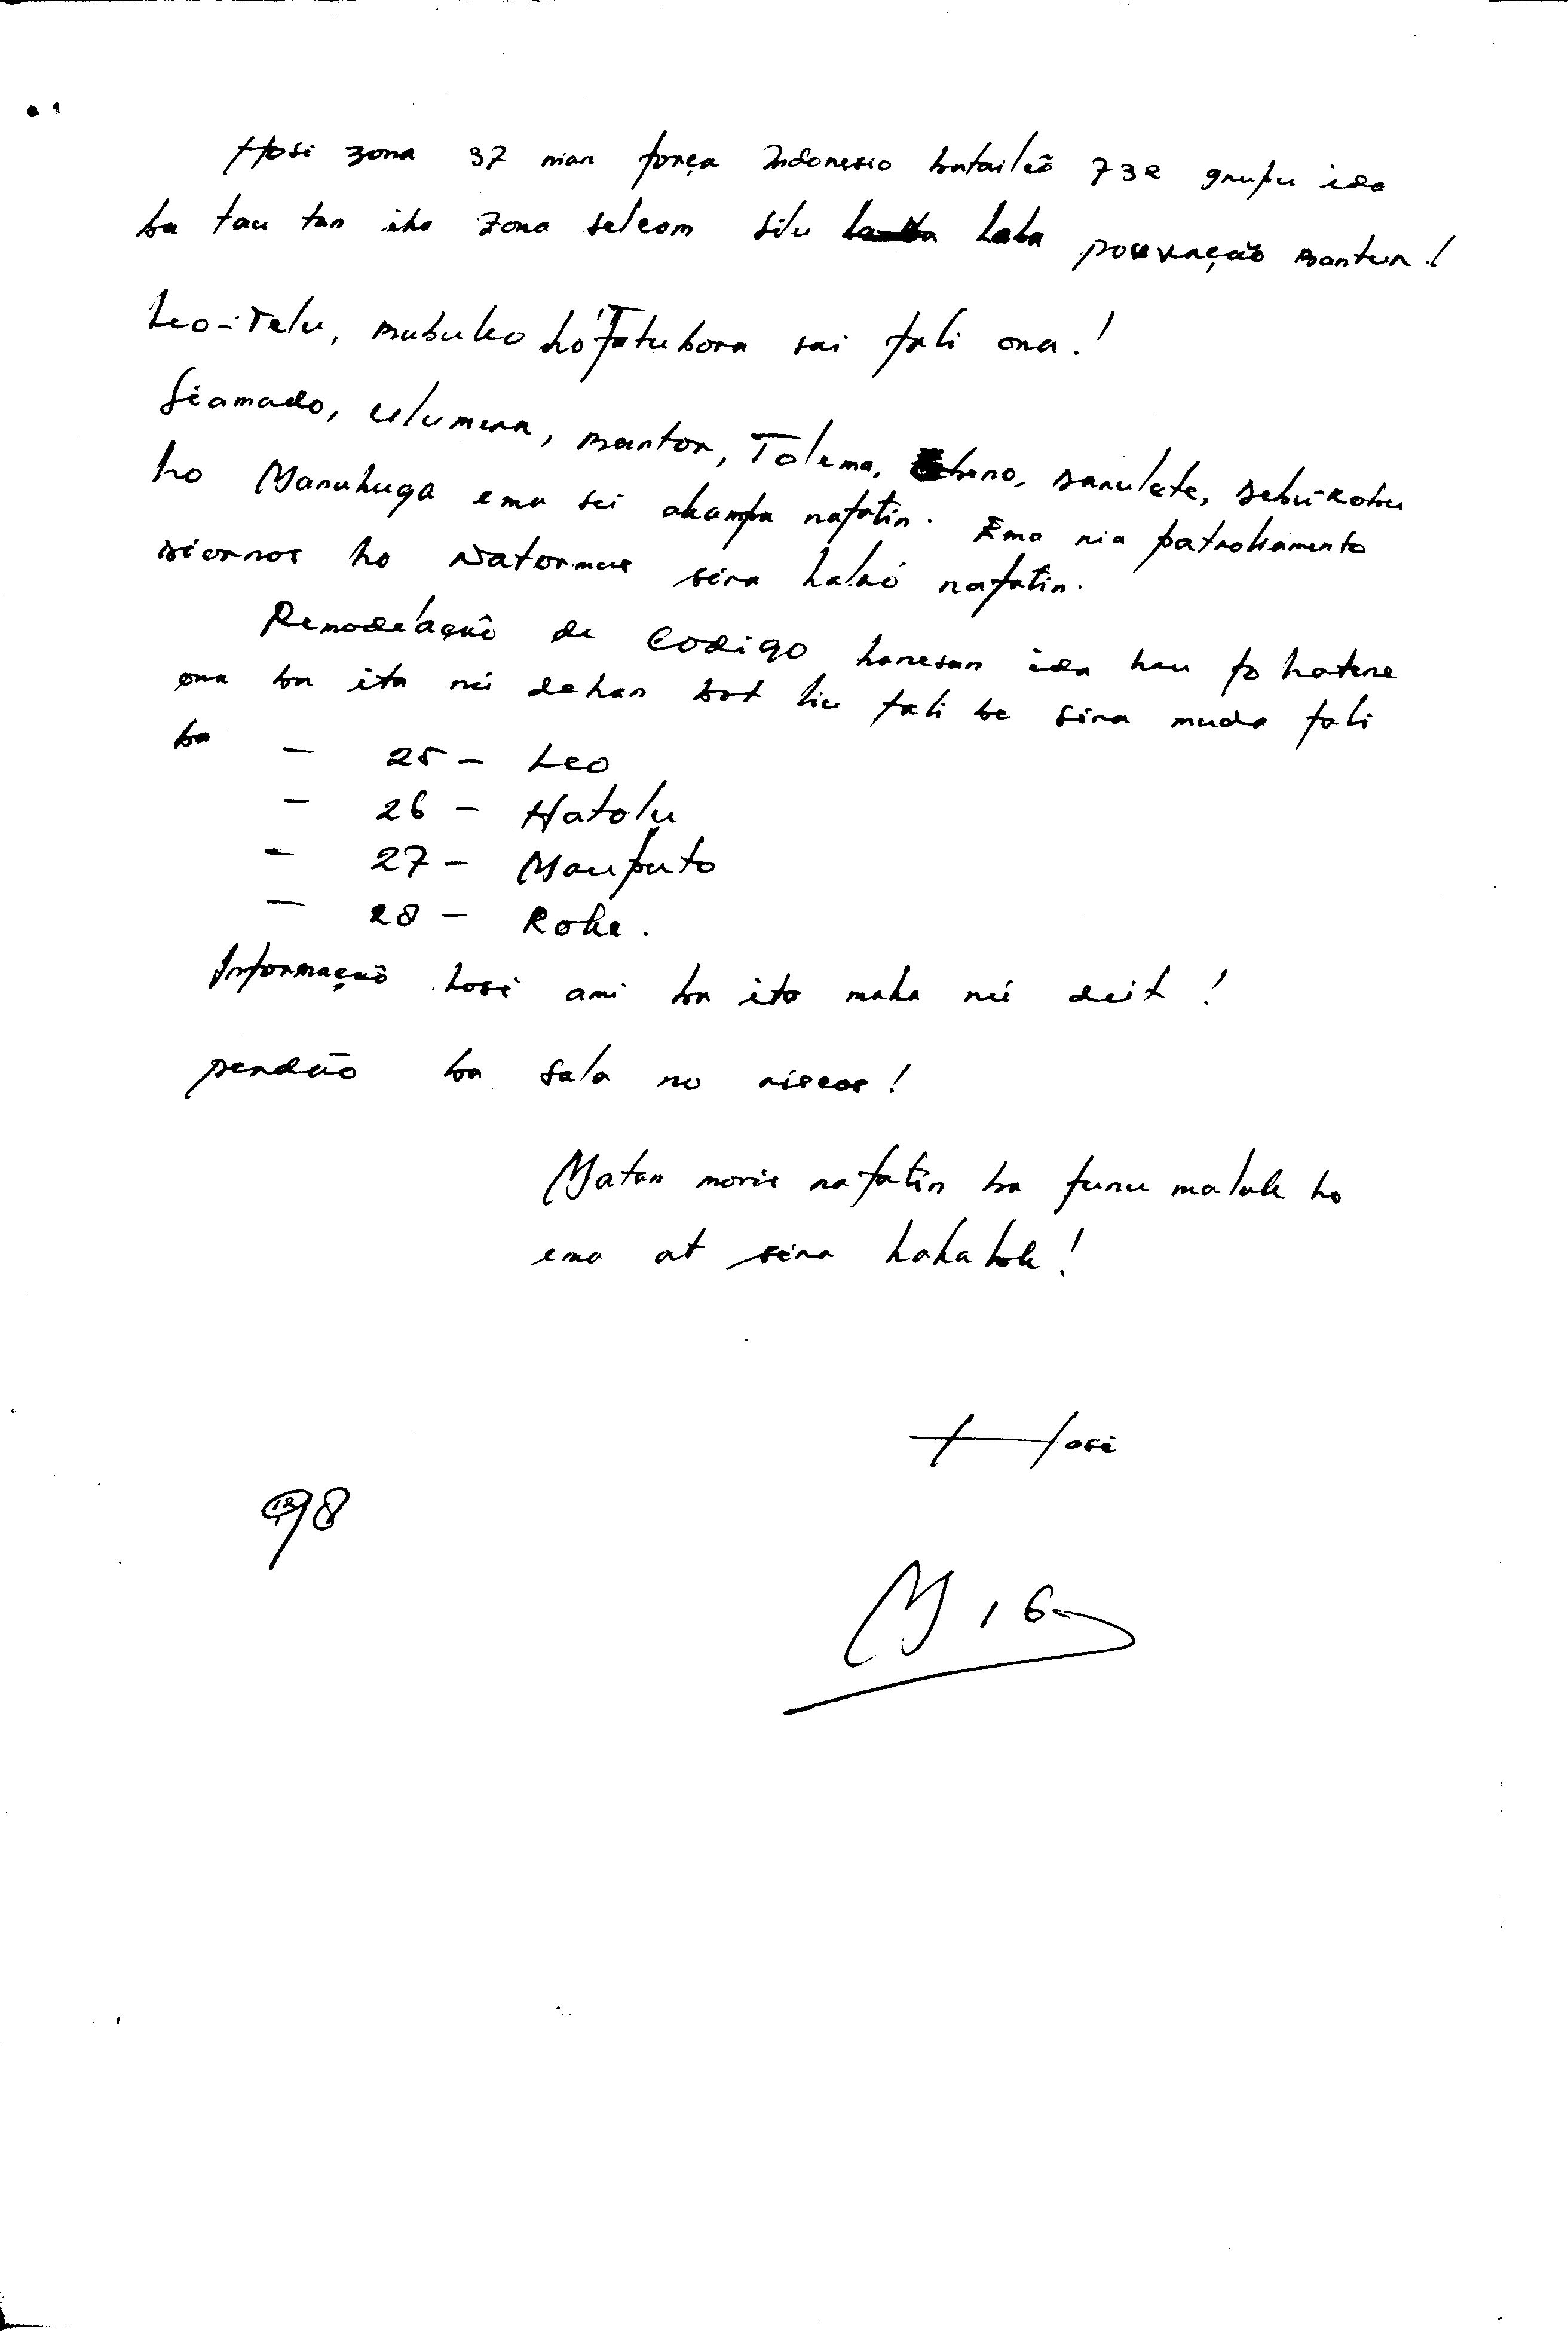 Hosi zona 37 nian força Indonesio batailão 732 grupu ida
ba tau tan iha zona seleom silu laba povoação Bantur!
Leo-Telu, Bubuleo ho Fatubora sai fali ona!
Siamado, Ulumera, Bantor, Tolema, Darulete, Debu-Kobu
ho Manukuga ema sei akampa nafatin. Ema nia patroliamento
diornos ho Natornos sira halaó nafatin.
Remodelação de Codigo hanesan ida hau fo hatene
ona ba ita néi dehan bot liu fali be sira muda fali
ba - 25 - Leo
- 26 - Hatolu
- 27 - Mauputo
- 28 - Roke.
Informação hosi ami ba ita maka néi deit!
perdão ba sala no riscos!
Matan moris nafatin ba funu maluk ho
ema at sira hakahok!
Hosi
98
M16